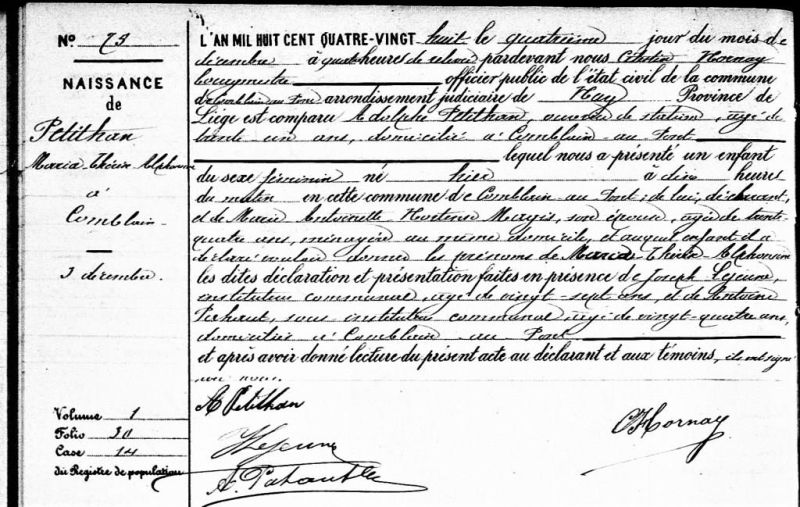 N° 73
NAISSANCE
de
Petithan
Maria Thérèse Alphonsine
à
Comblain-
3 décembre.
Volume 1
Folio 30
Case 14
du Registre de population
L'AN MIL HUIT CENT QUATRE-VINGT huit le quatrième jour du mois de
décembre à quatre heures de relevée pardevant nous Célestin Hornay
bourgmestre officier public de l'état civil de la commune
de Comblain au Pont arrondissement judiciaire de Huy Province de
Liège est comparu Adolphe Petithan, ouvrier de station, âgé de
trente un ans, domicilié à Comblain-au-Pont
lequel nous a présenté un enfant
du sexe féminin né hier à dix heures
du matin en cette commune de Comblain au Pont; de lui, déclarant,
et de Marie Antoinette Hortense Magis, son épouse, âgée de trente-
quatre ans, ménagère au même domicile, et auquel enfant il a
déclaré vouloir donner les prénoms de Maria-Thérèse-Alphonsine
les dites déclaration et présentation faites en présence de Joseph Lejeune,
instituteur communal, âgé de vingt-sept ans, et de Antoine
sous instituteur communal, âgé de vingt-quatre ans,
domiciliés à Comblain au Pont
et après avoir donné lecture du présent acte au déclarant et aux témoins, ils ont signé
avec nous.
A Petithan
CHornay
JLejeune
A.